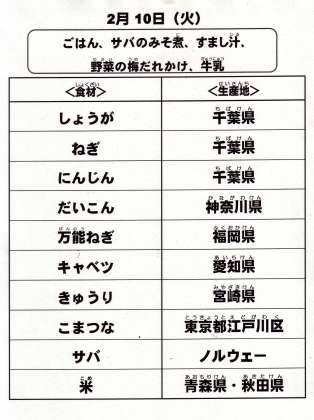 2月 10日（火）
ごはん、サバのみそ煮、すまし汁、
野菜の梅だれかけ、牛乳
＜食材＞ ＜生産地＞
しょうが 千葉県
ねぎ 千葉県
にんじん 千葉県
だいこん 神奈川県
万能ねぎ 福岡県
キャベツ 愛知県
きゅうり 宮崎県
こまつな 東京都江戸川区
サバ ノルウェー
米 青森県・秋田県